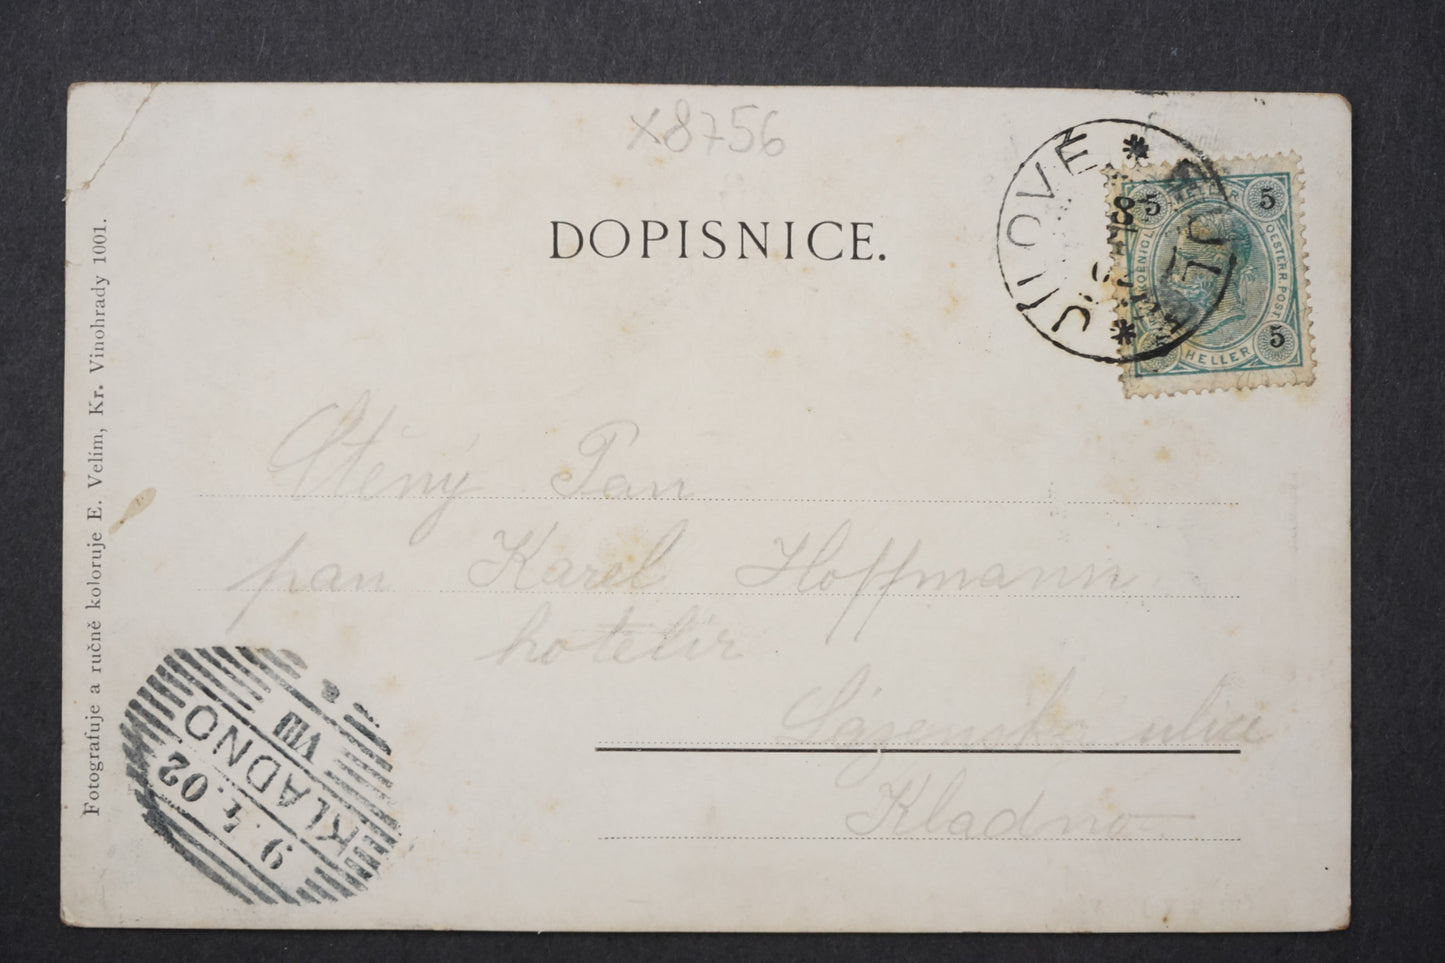 x8756
DOPISNICE.
JÍLOVÉ
8
5
5
5
5
HELLER
OESTERR. POST
HELLER
Ctěný Pan
pan Karel Hoffmann
hotelir
Lázenská ulice
Kladno
Fotografuje a ručně koloruje E. Velím, Kr. Vinohrady 1001.
KLADNO
VIII
9. 4. 02